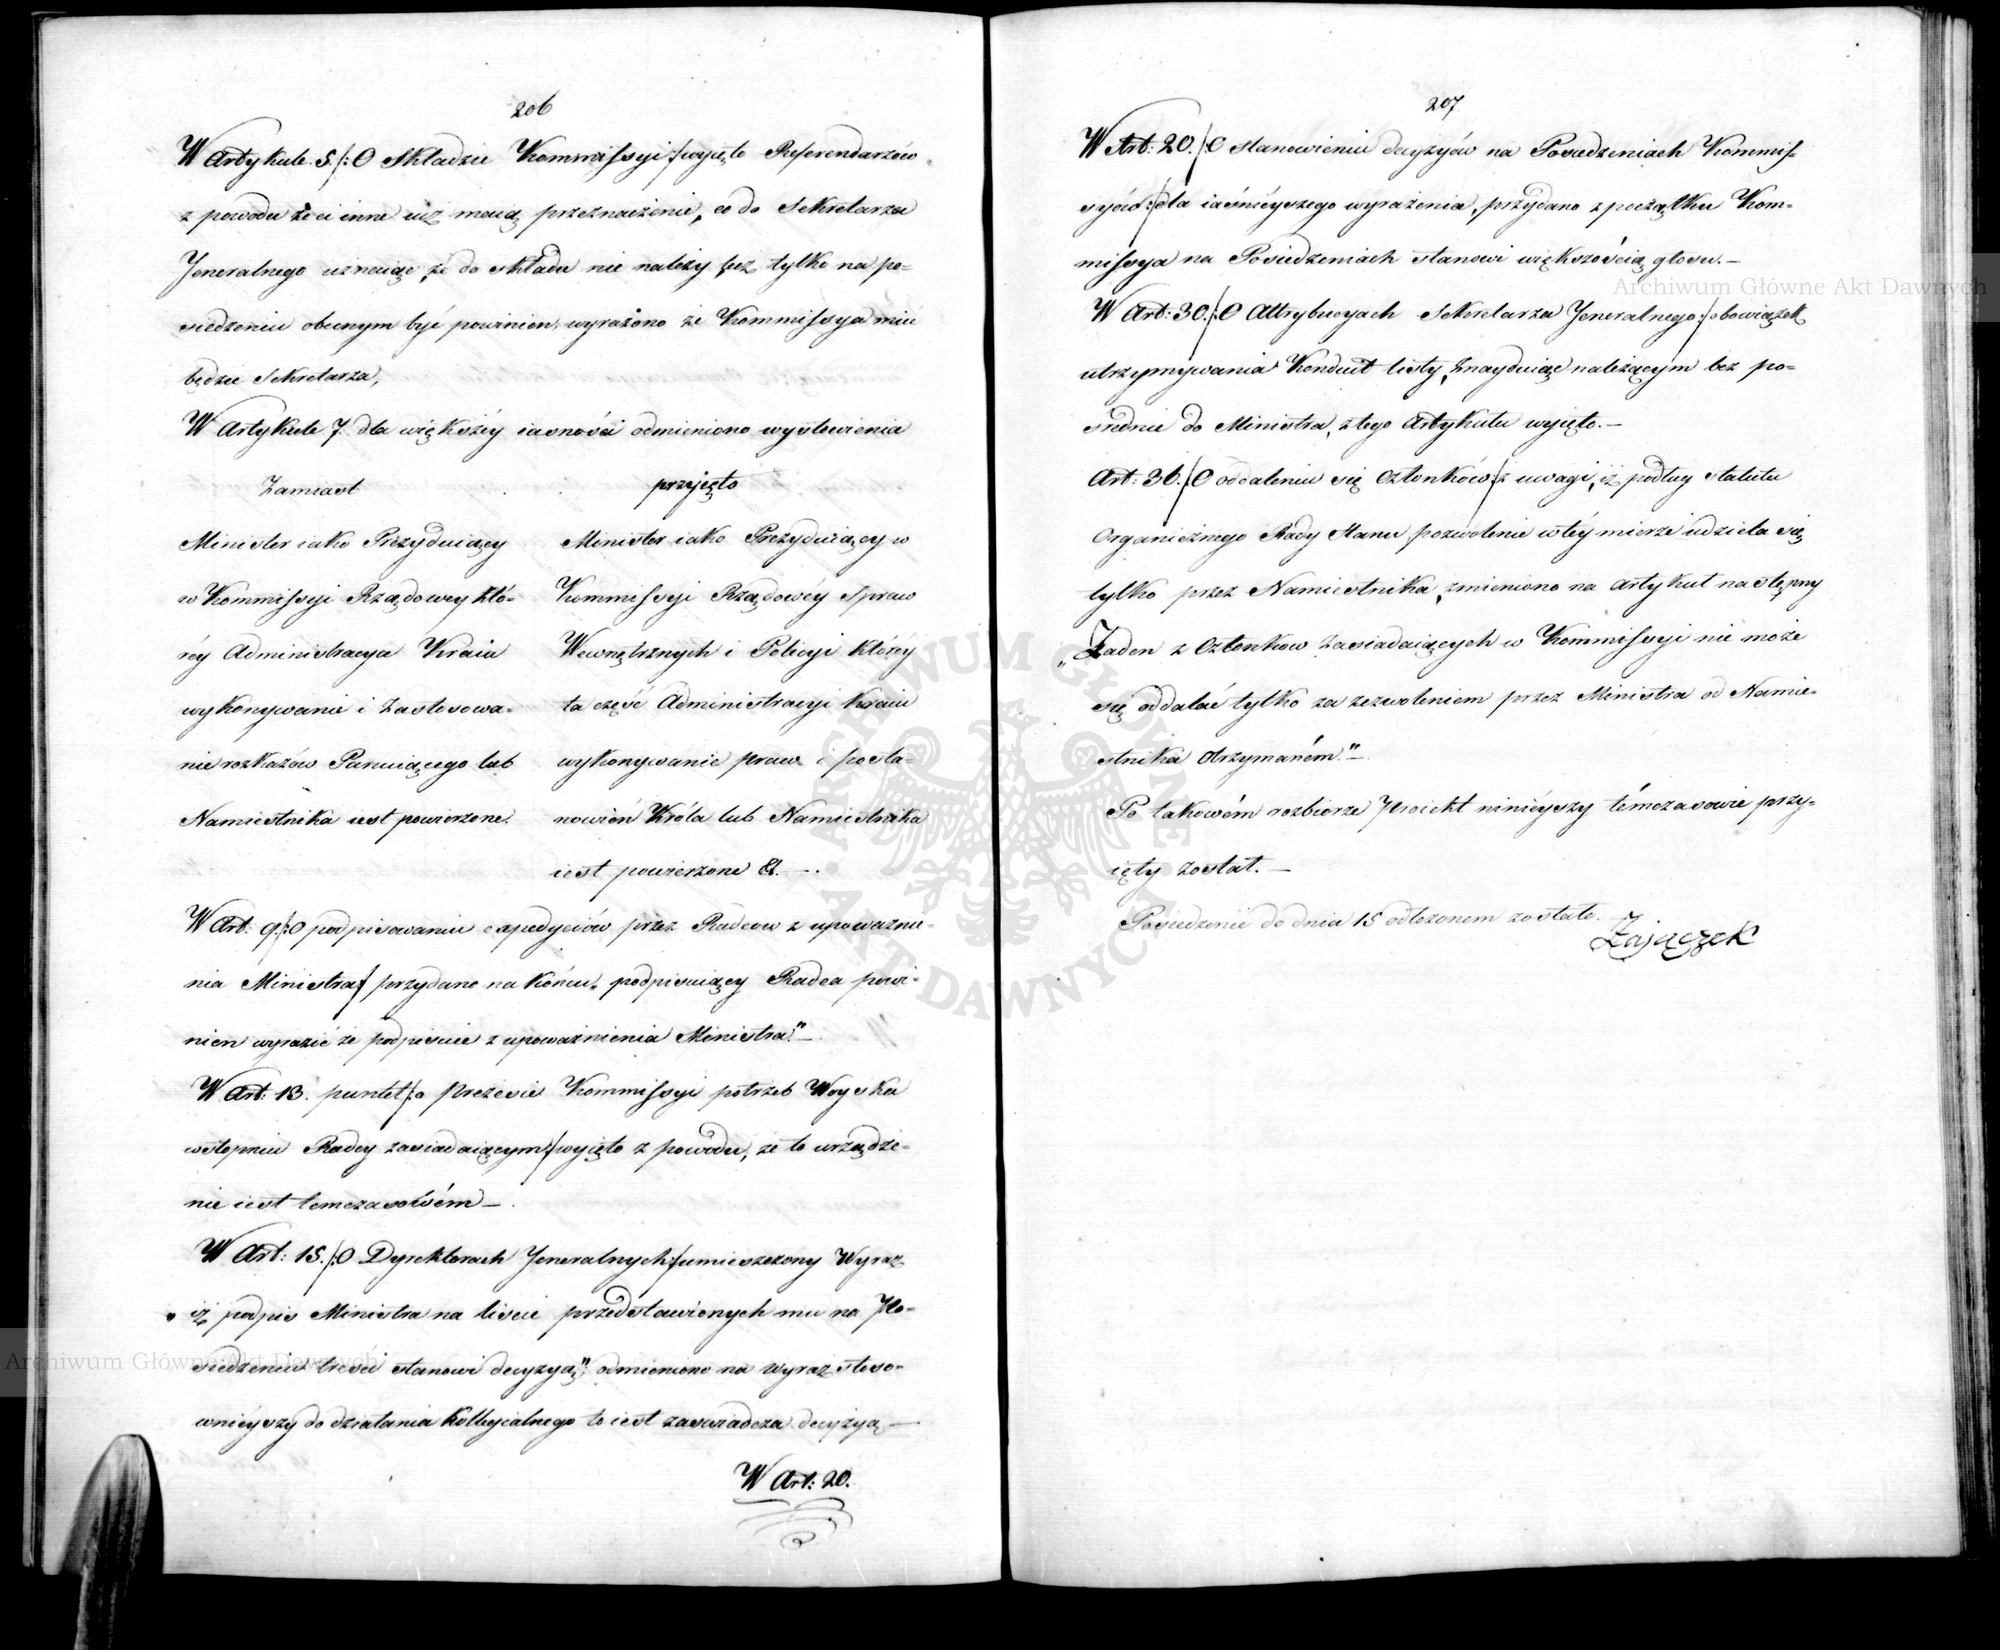 206
W Artykule 5 /:O Składzie Kommissyi:/ wyięto Referendarzów
z powodu że ci inne iuż maią przeznaczenie, co do Sekretarza
Jeneralnego uznaiąc, że do składu nie należy lecz tylko na po-
siedzeniu obecnym być powinien, wyrażono że Kommissya mieć
będzie Sekretarza,
W Artykule 7. dla większéy iasności odmieniono wysłowienia
Zamiast
Minister iako Prezyduiący
w Kommissyi Rządowey któ-
réy Administracya Kraiu
wykonywanie i zastosowa-
nie rozkazów Panuiącego lub
Namiestnika iest powierzone.
przyjęto
Minister iako Prezyduiący w
Kommissyi Rządowéy Spraw
Wewnętrznych i Policyi któréy
ta część Administracyi Kraiu
wykonywanie praw i posta-
nowień Króla lub Namiestnika
iest powierzone &. —.
W Art: 9. /:O podpisowaniu expedyciów przez Radcow z upoważnie-
nia Ministra:/ przydano na końcu „podpisuiący Radca powi-
nien wyrazić że podpisuie z upoważnienia Ministra." —
W Art: 13. punkt /:o Prezesie Kommissyi potrzeb Woyska
w stopniu Radcy zasiadaiącym:/ wyięto z powodu, że to urządze-
nie iest temczasowém —.
W Art: 15. /:O Dyrektorach Jeneralnych:/ umieszczony Wyraz
„iż podpis Ministra na liście przedstawionych mu na Po-
siedzeniu treści stanowi decyzyą", odmieniono na wyraz stoso-
wnieyszy do działania Kollegialnego to iest zaswiadcza decyzyą —
W Art: 20.
207
W Art: 20. /:O stanowieniu decyzyów na Posiedzeniach Kommis-
syów:/ dla iaśnieyszego wyrażenia, przydano z początku Kom-
missya na Posiedzeniach stanowi większością głosu. —
W Art: 30. /:O Attrybucyach Sekretarza Jeneralnego:/ obowiązek
utrzymywania Konduit listy, znayduiąc należącym bez po-
średnie do Ministra, z tego Artykułu wyięto. —
Art: 36. /:O oddaleniu się Członków:/ z uwagi, iż podług statutu
Organicznego Rady Stanu pozwolenie w téy mierze udziela się
tylko przez Namiestnika, zmieniono na artykuł następny
„Żaden z Członkow zasiadaiących w Kommissyi nie może
się oddalać tylko za zezwoleniem przez Ministra od Namie-
stnika Otrzymaném." —
Po takowém rozbiorze Proiekt ninieyszy témczasowie przy-
ięty został. —
Posiedzenie do dnia 15 odłożonem zostało.
Zajączek
Archiwum Główne Akt Dawnych
Archiwum Główne Akt Dawnych
ARCHIWUM GŁÓWNE AKT DAWNYCH